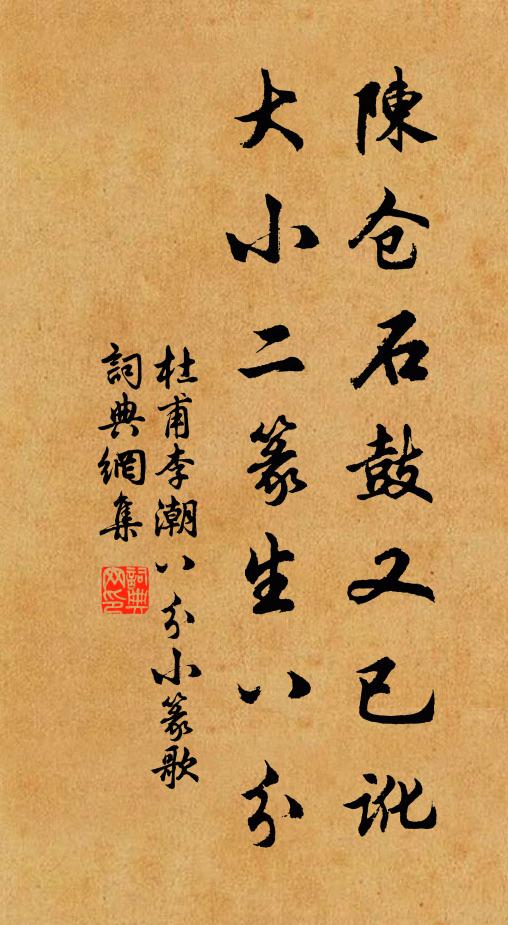 陳仓石鼓又已訛
大小二篆生八分
杜甫李潮八分小篆歌
詞典網集
詞典网印